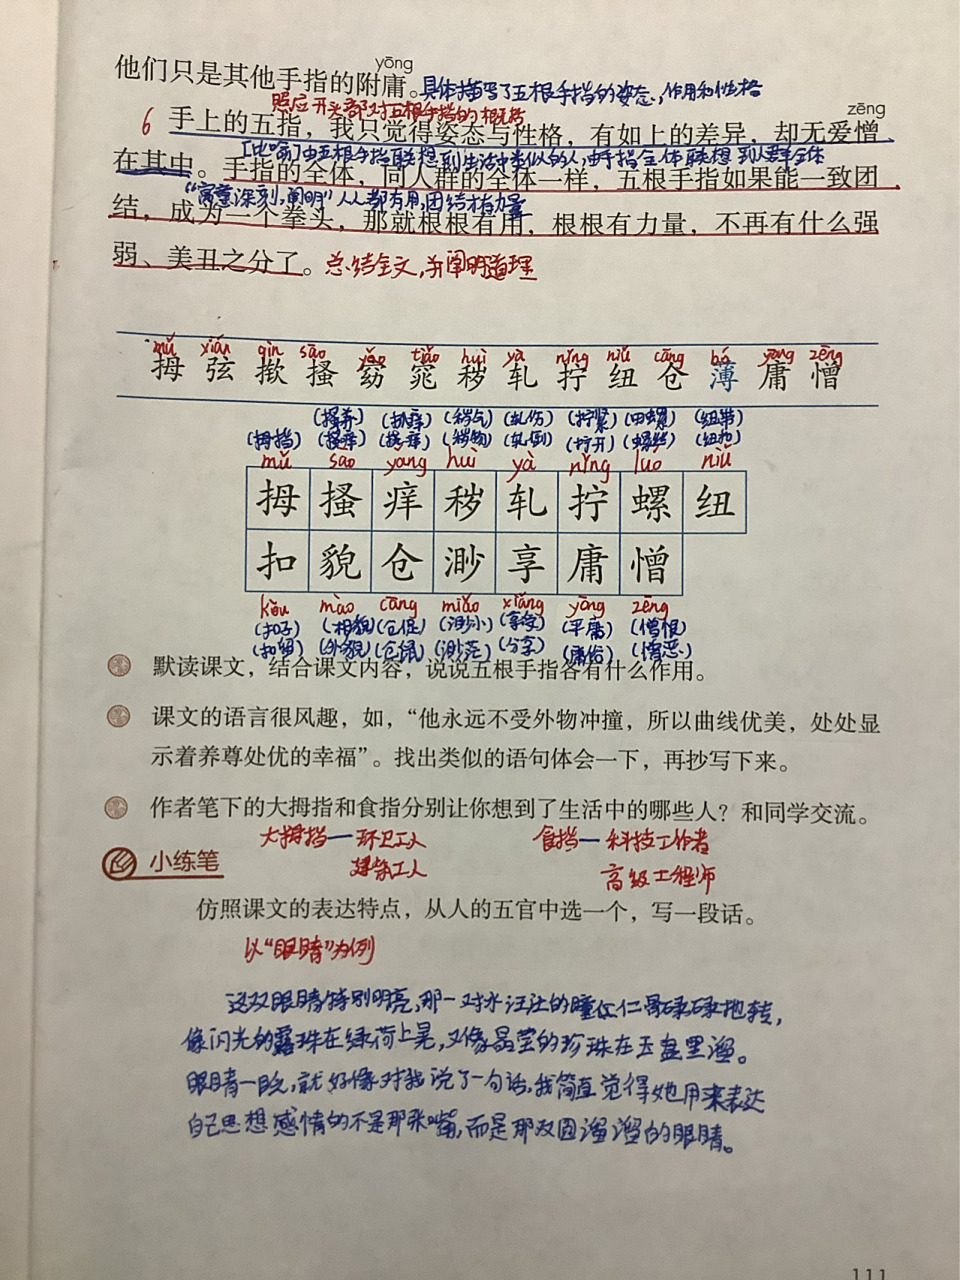 yōng
他们只是其他手指的附庸。具体描写了五根手指的姿态、作用和性格
照应开头部对五根手指的概括
zēng
6 手上的五指，我只觉得姿态与性格，有如上的差异，却无爱憎
[比喻]由五根手指联想到生活中类似的人，由手指全体联想到人群全体
在其中。手指的全体，同人群的全体一样，五根手指如果能一致团
“寓意深刻，阐明”人人都有用，团结才有力量
结，成为一个拳头，那就根根有用，根根有力量，不再有什么强
弱、美丑之分了。总结全文，并阐明道理
mǔ xián qìn sāo yǎo tiǎo huì yà nǐng niǔ cāng bó yōng zēng
拇 弦 揿 搔 窈 窕 秽 轧 拧 纽 仓 薄 庸 憎
(搔养) (扒痒) (秽气) (轧伤) (拧紧) (田螺) (纽带)
(拇指) (搔痒) (搔痒) (秽物) (轧倒) (拧开) (螺丝) (纽扣)
mǔ sao yang huì yà nǐng luó niǔ
拇 搔 痒 秽 轧 拧 螺 纽
扣 貌 仓 渺 享 庸 憎
kòu mào cāng miǎo xiǎng yōng zēng
(扣子) (相貌) (仓促) (渺小) (享受) (平庸) (憎恨)
(扣留) (外貌) (仓鼠) (渺茫) (分享) (庸俗) (憎恶)
默读课文，结合课文内容，说说五根手指各有什么作用。
课文的语言很风趣，如，“他永远不受外物冲撞，所以曲线优美，处处显
示着养尊处优的幸福”。找出类似的语句体会一下，再抄写下来。
作者笔下的大拇指和食指分别让你想到了生活中的哪些人？和同学交流。
大拇指—环卫工人 食指—科技工作者
建筑工人 高级工程师
小练笔
仿照课文的表达特点，从人的五官中选一个，写一段话。
以“眼睛”为例
这双眼睛特别明亮，那一对水汪汪的瞳仁仁骨碌碌地转，
像闪光的露珠在绿荷上晃，又像晶莹的珍珠在玉盘里溜。
眼睛一眨，就好像对我说了一句话，我简直觉得她用来表达
自己思想感情的不是那张嘴，而是那双圆溜溜的眼睛。
111